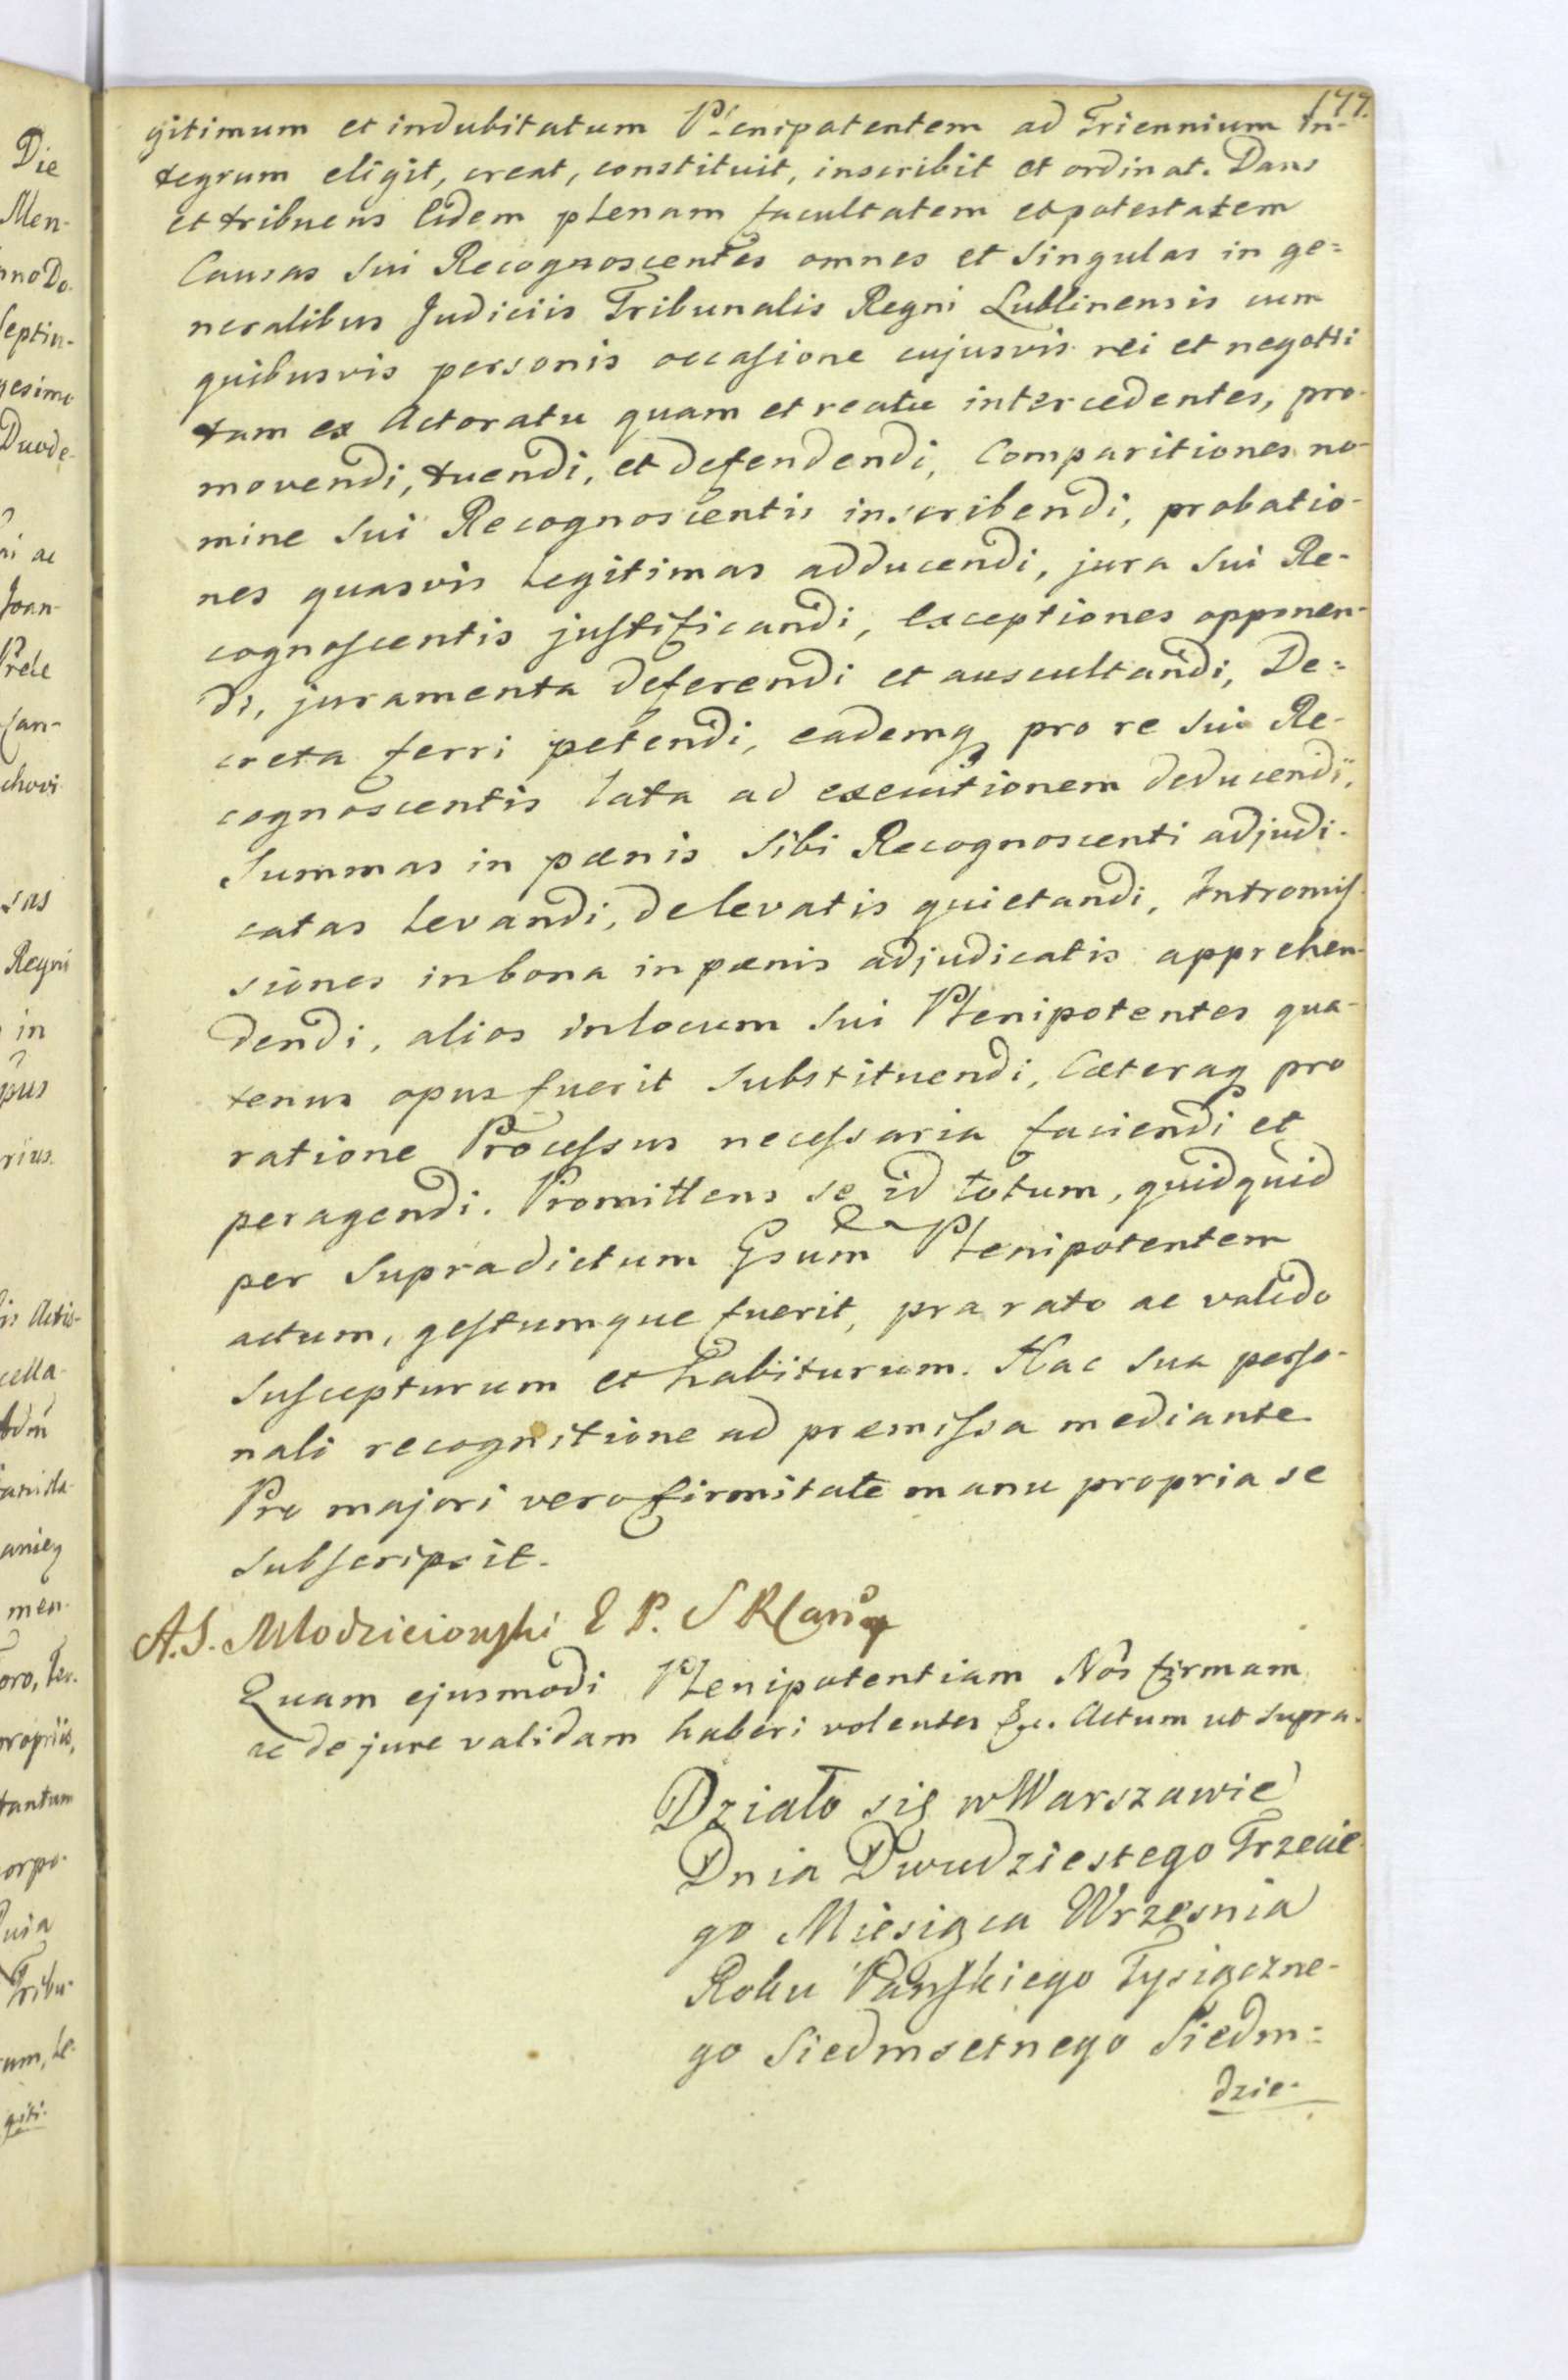 177.
gitimum et indubitatum Plenipotentem ad Triennium in-
tegrum eligit, creat, constituit, inscribit et ordinat. Dans
et tribuens Eidem plenam facultatem et potestatem
Causas sui Recognoscentis omnes et singulas in ge=
neralibus Judiciis Tribunalis Regni Lublinensis cum
quibusvis personis occasione cujusvis rei et negotii
tam ex Actoratu quam et reatu intercedentes, pro-
movendi, tuendi, et defendendi, Comparitiones no-
mine sui Recognoscentis inscribendi, probatio-
nes quasvis legitimas adducendi, jura sui Re-
cognoscentis justificandi, exceptiones opponen-
di, juramenta deferendi et auscultandi, De=
creta ferri petendi, eademq pro re sui Re-
cognoscentis lata ad executionem deducendi,
Summas in pænis sibi Recognoscenti adjudi-
catas levandi, de levatis quietandi, Intromis-
siones in bona in pænis adjudicatis apprehen-
dendi, alios in locum sui Plenipotentes qua-
tenus opus fuerit substituendi, Cæteraq pro
ratione Processus necessaria faciendi et
peragendi. Promittens se id totum, quidquid
per supradictum Gsum Plenipotentem
actum, gestumque fuerit, pra rato ac valido
suscepturum et habiturum. Hac sua perso-
nali recognitione ad præmissa mediante
Pro majori vero firmitate manu propria se
subscripsit.
A. S. Mlodzieiowski E P. S R Canq
Quam ejusmodi Plenipotentiam Nos firmam
ac de jure validam haberi volentes &c. Actum ut supra.
Działo się w Warszawie
Dnia Dwudziestego Trzecie-
go Miesiąca Wrzesnia
Roku Pańskiego Tysiączne-
go Siedmsetnego Siedm=
dzie-
Die
Men-
nno Do-
Septin-
gesimo
Duode-
ni ac
Joan-
chovi
sas
Regni
in
pus
rius.
is Actis-
cella-
men-
propriis,
tantum
orpo-
Tribu-
um, le-
giti-